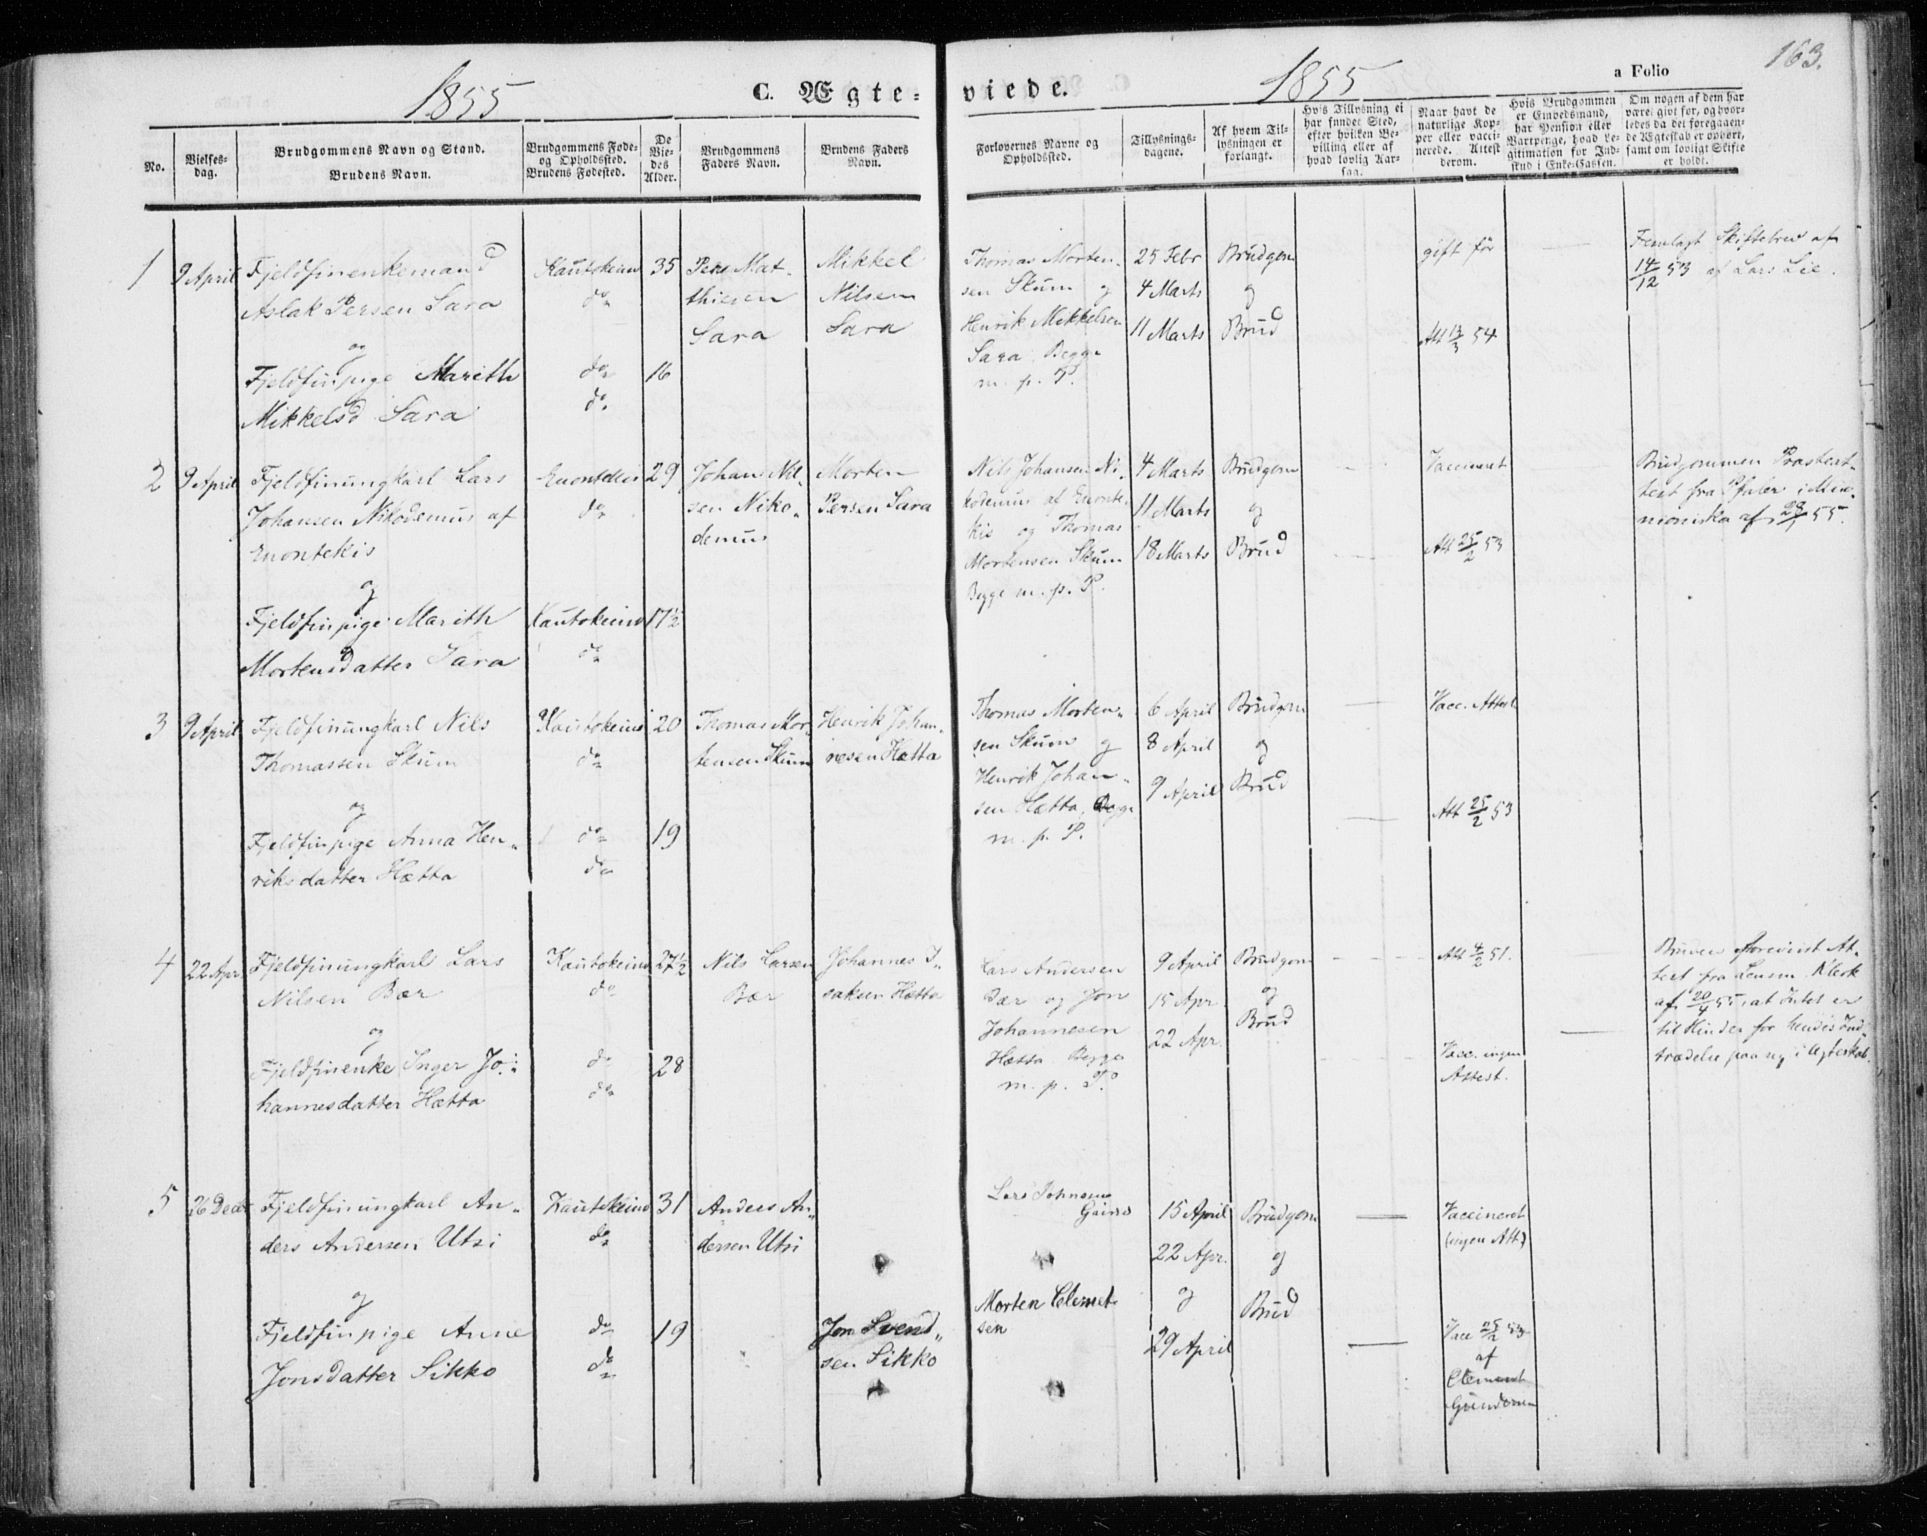 163.
1855
C. Ægte-
viede.
1855
a Folio
No.
Vielses-
dag.
Brudgommens Navn og Stand.
Brudens Navn.
Brudgommens Føde-
og Opholdssted.
Brudens Fødested.
De
Vie-
des
Alder.
Brudgommens
Faders Navn.
Brudens Faders
Navn.
Forlovernes Navne og
Opholdssted.
Tillysnings-
dagene.
Af hvem Til-
lysningen er
forlangt.
Hvis Tillysning ei
har fundet Sted,
efter hvilken Be-
villing eller af
hvad lovlig Aar-
sag.
Naar havt de
naturlige Kop-
per eller vacci-
nerede. Attest
derom.
Hvis Brudgommen
er Enkedsmand,
har Pension eller
Vartpenge, hvad Le-
gitimation for Ind-
skud i Enke-Cassen.
Om nogen af dem har
været gift før, og hvor-
ledes da det foregaaen-
de Ægteskab er ophørt,
samt om lovligt Skifte
er holdt.
1
9 April
Fjeldfinenkemand
Aslak Persen Sara
og
Fjeldfinpige Marith
Mikkelsd Sara
Kautokeino
do
do
do
35
16
Peer Mat-
thisen
Sara
Mikkel
Nilsen
Sara
Thomas Morten-
sen Skum og
Henrik Mikkelsen
Sara Begge
m. p. P.
25 Febr
4 Marts
11 Marts
Brudgom
og
Brud
gift før
Att 13/3 54
Fremlagt Skiftebrev af
14/12 53 af Lars Lie.
2
9 April
Fjeldfinungkarl Lars
Johansen Nikodemus af
Enontekis
og
Fjeldfinpige Marith
Mortensdatter Sara
Enontekis
do
Kautokeino
do
29
17½
Johan Nil-
sen Niko-
demus
Morten
Persen Sara
Nils Johansen Ni-
kodemus af Enonte-
kis og Thomas
Mortensen Skum
Begge m. p. P.
4 Marts
11 Marts
18 Marts
Brudgom
og
Brud
Vaccineret
Att 25/2 53
Brudgommen Præsteat-
test fra Pfaler i Muo-
nioniska af 28/1 55.
3
9 April
Fjeldfinungkarl Nils
Thomassen Skum
og
Fjeldfinpige Anna Hen-
riksdatter Hætta
Kautokeino
do
do
do
20
19
Thomas Mor-
tensen Skum
Henrik Johan-
nesen Hætta
Thomas Morten-
sen Skum og
Henrik Johan-
sen Hætta, Begge
m. p. P.
6 April
8 April
9 April
Brudgom
og
Brud
Vacc. Attest
Att 25/2 53
4
22 Apr.
Fjeldfinungkarl Lars
Nilsen Bær
og
Fjeldfinenke Inger Jo-
hannesdatter Hætta
Kautokeino
do
do
do
27½
28
Nils Larsen
Bær
Johannes I-
saksen Hætta
Lars Andersen
Bær og Jon
Johannesen
Hætta Begge
m. p. P.
9 April
15 Apr
22 Apr.
Brudgom
og
Brud
Att 4/2 51.
Vacc. ingen
Attest.
Bruden forevist At-
test fra Lensm. Klerk
af 20/4 55, at Intet er
til Hinder for hendes Ind-
trædelse paa ny i Ægteskab.
5
26 Decbr
Fjeldfinungkarl An-
ders Andersen Utsi
og
Fjeldfinpige Anne
Jonsdatter Sikko
Kautokeino
do
do
do
31
19
Anders An-
dersen Utsi
Jon Svend-
sen Sikko
Lars Johnsen
Gaino
Morten Clemet-
sen
15 April
22 Apr.
og
29 April
Brudgom
og
Brud
Vaccineret
(ingen Att)
Vacc 25/2 53
af
Clement
Gundersen